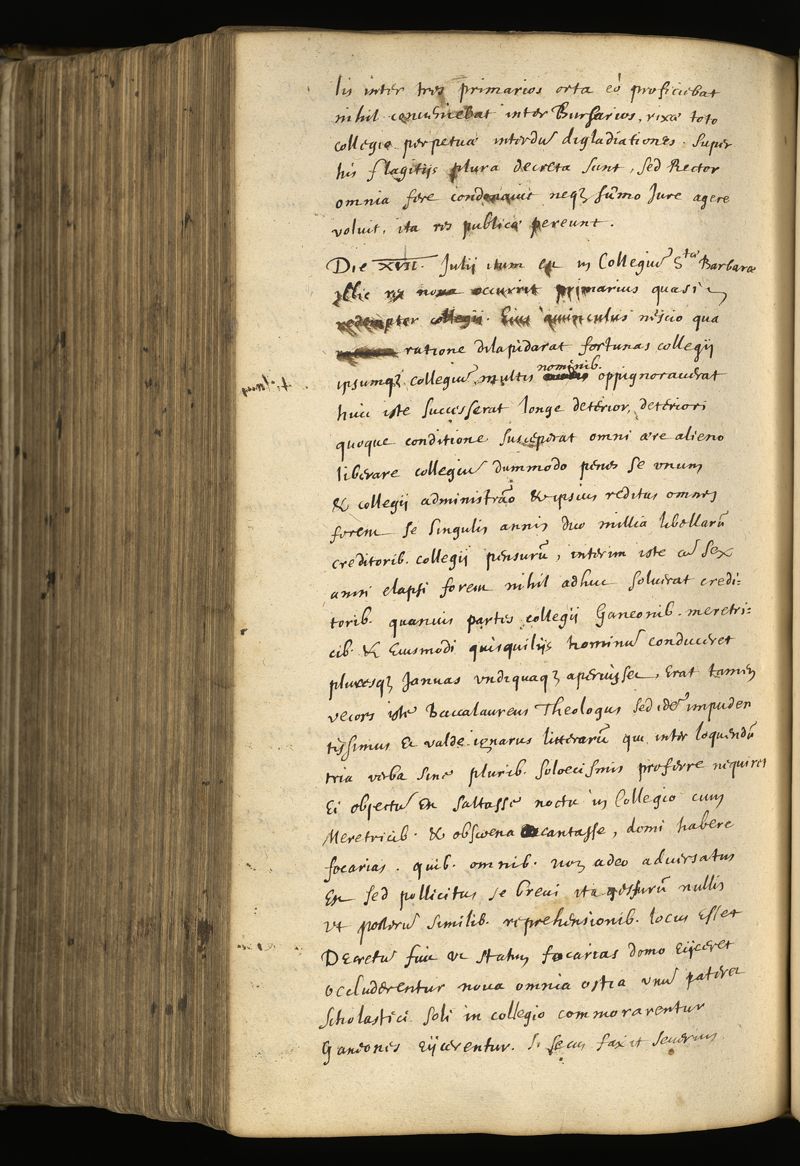 lis inter tres primarios orta eò proficiebat
nihil conueniebat inter Bursarios, rixæ toto
collegio perpetuæ interdũ digladiationes. Super
his flagitijs plura decreta sunt, sed Rector
omnia fere condonauit neq₃ sum̃o Jure agere
voluit, ita res publicæ pereunt.
Die XVII. Julij itum est in Collegiũ Stæ Barbaræ
illic res noua occurrit primarius quasi
redemptor collegij. Eius auunculus nescio qua
ratione dilapidarat fortunas collegij
ipsumq₃ collegiũ multis nominib. oppignorauerat
huic iste successerat longe deterior, deteriori
quoque conditione susceperat omni ære alieno
liberare collegiũ dummodo penes se vnum
& collegij administrãõ & ipsius reditus omnes
forent se singulis annis duo millia libellarũ
creditorib. collegij pensurũ, interim iste cũ sex
anni elapsi forent nihil adhuc soluerat credi-
torib. quanuis partes collegij Ganeonib. meretri-
cib. & Eiusmodi quisquilijs hominũ conduceret
pluresq₃ Januas vndiquaq₃ aperuisset, Erat tamen
vecors iste Baccalaureus Theologus sed idẽ impuden
tissimus Et valde ignarus litterarũ qui inter loquendũ
tria verba sine plurib. soloecismis proferre nequiret
Ei objectũ Est saltasse noctu in Collegio cum
Meretricib. & obscoena cantasse, domi habere
focarias. quib. omnib. non adeo aduersatus
Est sed pollicitus se breui ita gessurũ nullis
vt posterũ similib. reprehensionib. locus Esset
Decretũ fuit vt statim focarias domo Eijceret
occluderentur noua omnia ostia vnũ pateret
scholastici soli in collegio commorarentur
Ganeones Eijcerentur. Si secus faxit seuerius